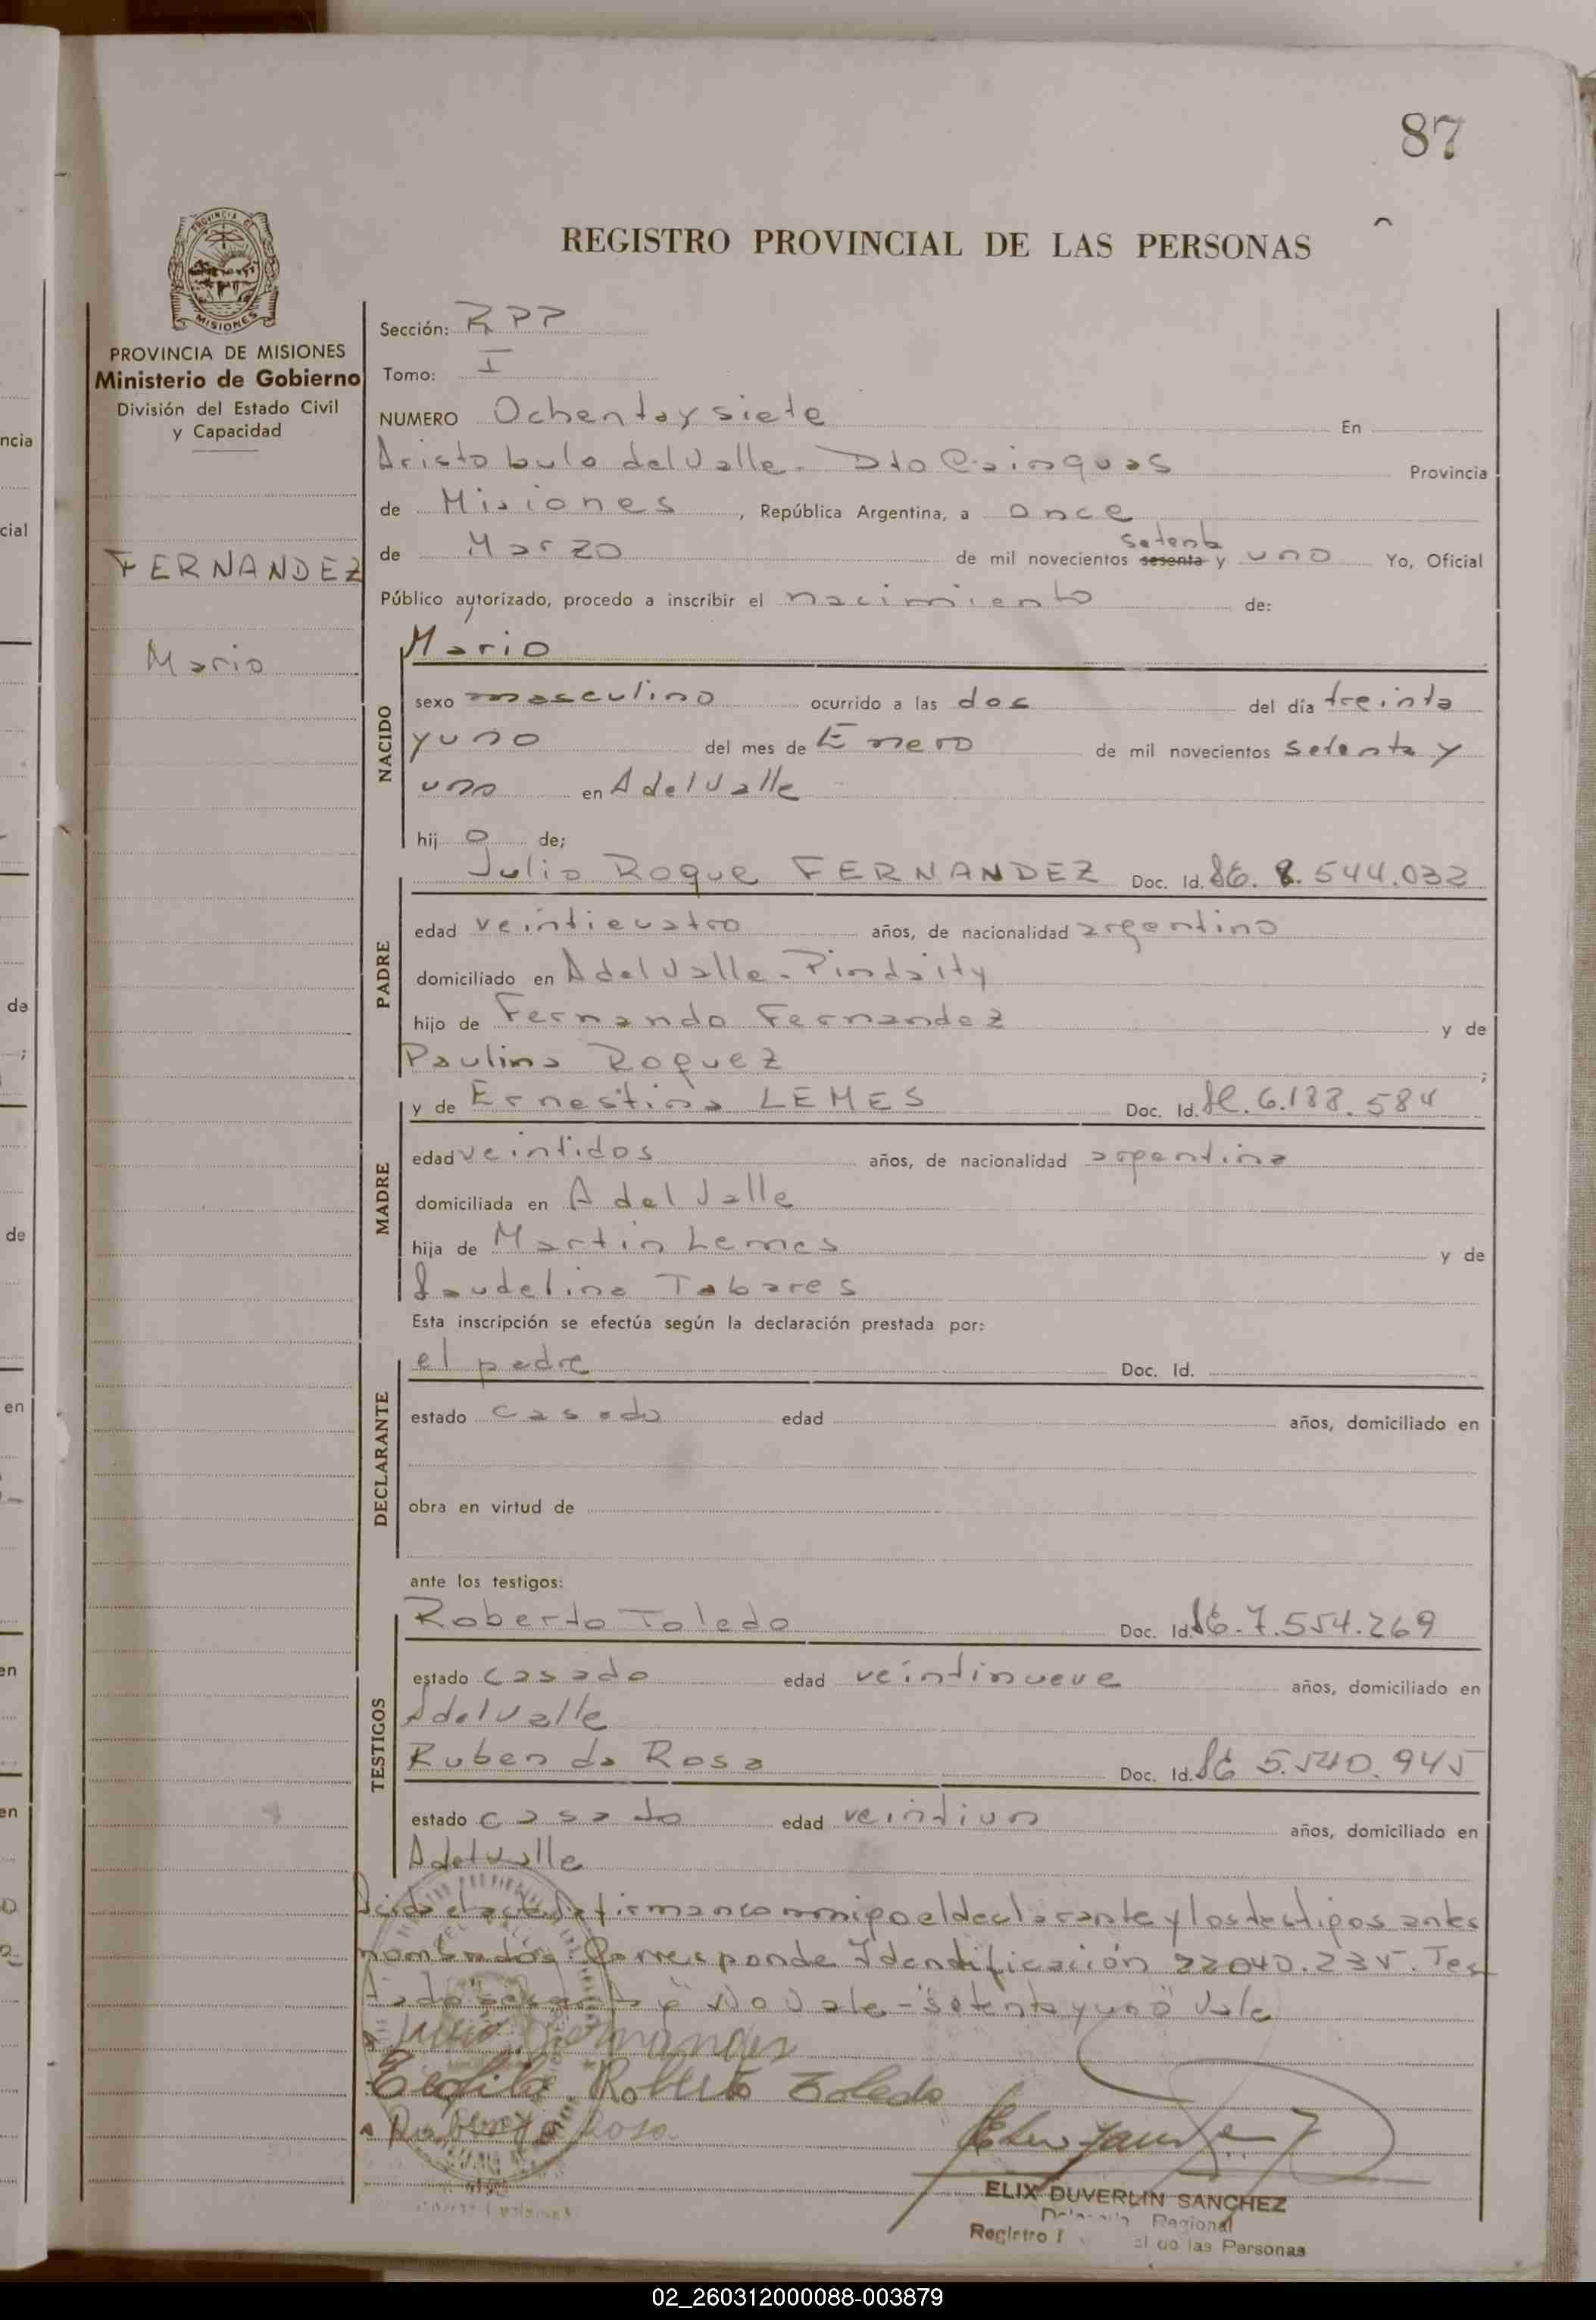 87
REGISTRO PROVINCIAL DE LAS PERSONAS
PROVINCIA DE MISIONES
Ministerio de Gobierno
División del Estado Civil
y Capacidad
FERNANDEZ
Mario
Sección: RPP
Tomo: I
NUMERO Ochenta y siete En
Aristobulo del Valle - Dto Cainguas Provincia
de Misiones, República Argentina, a once
setenta
de Marzo de mil novecientos sesenta y uno Yo, Oficial
Público autorizado, procedo a inscribir el nacimiento de:
Mario
NACIDO
sexo masculino ocurrido a las dos del día treinta
y uno del mes de Enero de mil novecientos setenta y
uno en A del Valle
hij o de;
Julio Roque FERNANDEZ Doc. Id. LE. 8.544.032
PADRE
edad veinticuatro años, de nacionalidad argentino
domiciliado en A del Valle - Pindaity
hijo de Fernando Fernandez y de
Paulina Roquez ;
MADRE
y de Ernestina LEMES Doc. Id. LC. 6.188.584
edad veintidos años, de nacionalidad argentina
domiciliada en A del Valle
hija de Martin Lemes y de
Laudelina Tabares
Esta inscripción se efectúa según la declaración prestada por:
DECLARANTE
el padre Doc. Id.
estado casado edad años, domiciliado en
obra en virtud de
ante los testigos:
TESTIGOS
Roberto Toledo Doc. Id. LE. 7.554.269
estado casado edad veintinueve años, domiciliado en
A del Valle
Ruben da Rosa Doc. Id. LE 5.540.945
estado casado edad veintiun años, domiciliado en
A del Valle
firman conmigo el declarante y los testigos antes
nombrados. Corresponde Identificación 22040.235. Tes
tado No Vale - "setenta y uno" Vale
Roberto Toledo
Ruben da Rosa
ELIX DUVERLIN SANCHEZ
Regional
Registro de las Personas
02_260312000088-003879